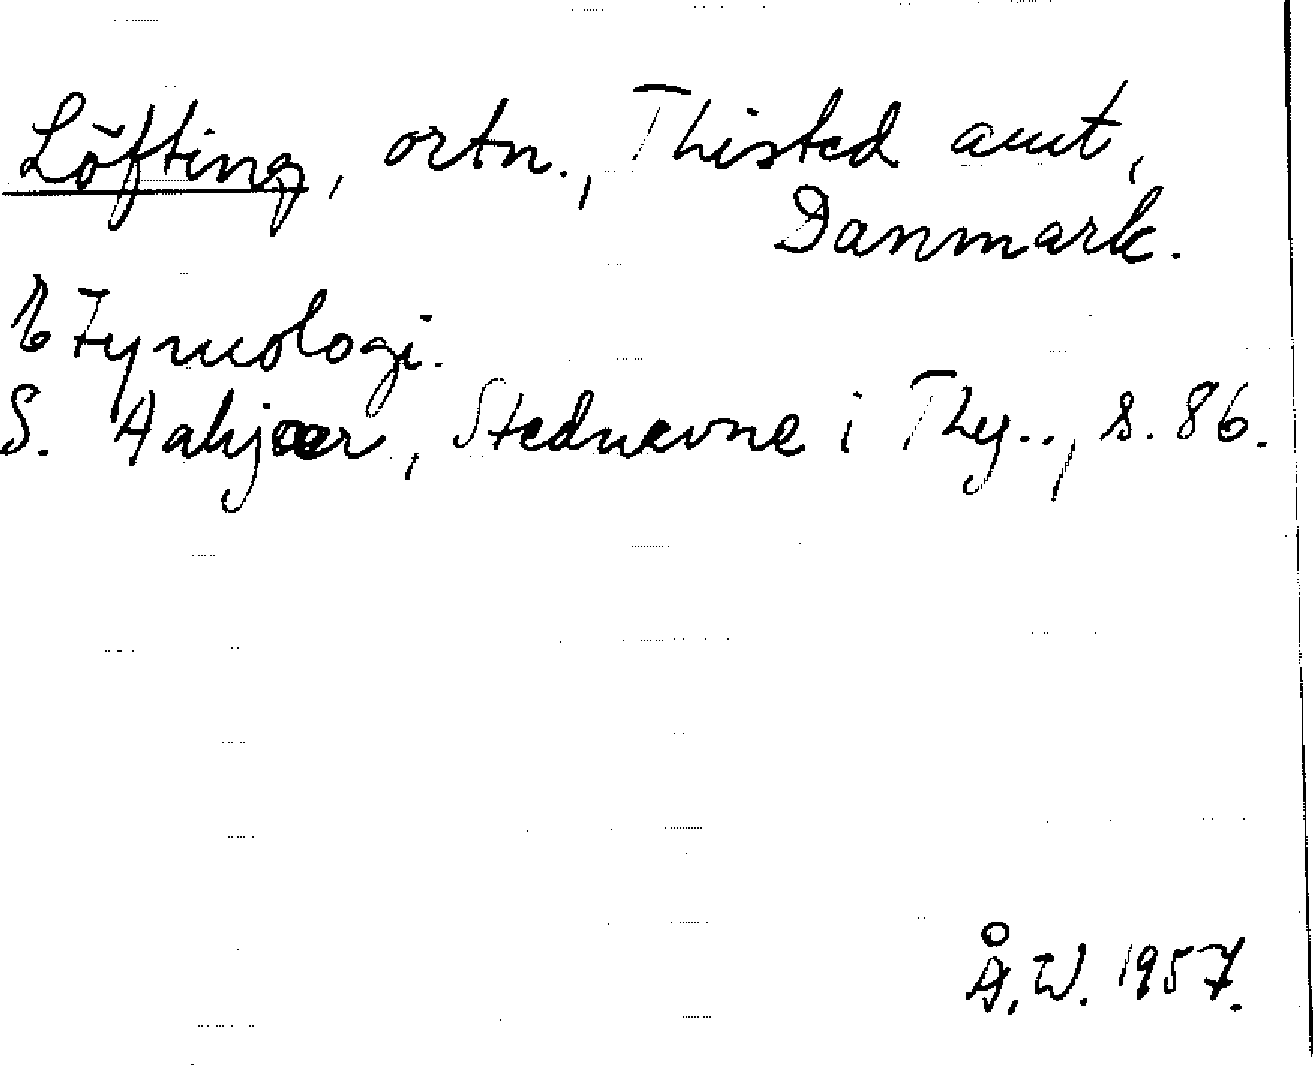 Löfting, ortn., Thisted amt,
Danmark.
Etymologi.
S. Aakjær, Stednavne i Thy.., s. 86.
Å. W. 1957.